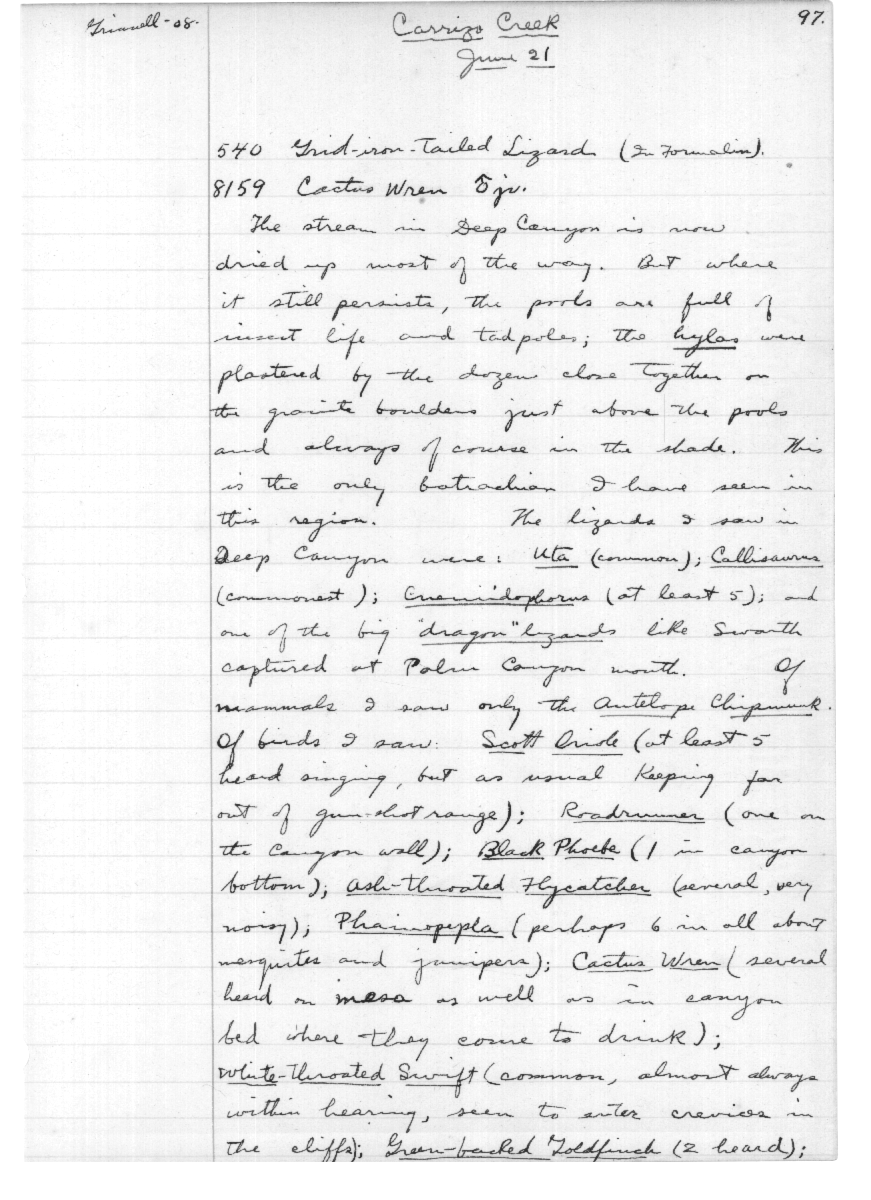 Grinnell-08.
Carrizo Creek
97.
June 21
540 Grid-iron-tailed Lizard (In Formalin).
8159 Cactus Wren ♂ jv.
The stream in Deep Canyon is now
dried up most of the way. But where
it still persists, the pools are full of
insect life and tadpoles; the hylas were
plastered by the dozen close together on
the granite boulders just above the pools
and always of course in the shade. This
is the only batrachian I have seen in
this region. The lizards I saw in
Deep Canyon were: Uta (common); Callisaurus
(commonest); Cnemidophorus (at least 5); and
one of the big "dragon" lizards like Swarth
captured at Palm Canyon mouth. Of
mammals I saw only the Antelope Chipmunk.
Of birds I saw: Scott Oriole (at least 5
heard singing, but as usual keeping far
out of gun-shot range); Roadrunner (one on
the canyon wall); Black Phoebe (1 in canyon
bottom); Ash-throated Flycatcher (several, very
noisy); Phainopepla (perhaps 6 in all about
mesquites and junipers); Cactus Wren (several
heard on mesa as well as in canyon
bed where they come to drink);
White-throated Swift (common, almost always
within hearing, seen to enter crevices in
the cliffs); Green-backed Goldfinch (2 heard);